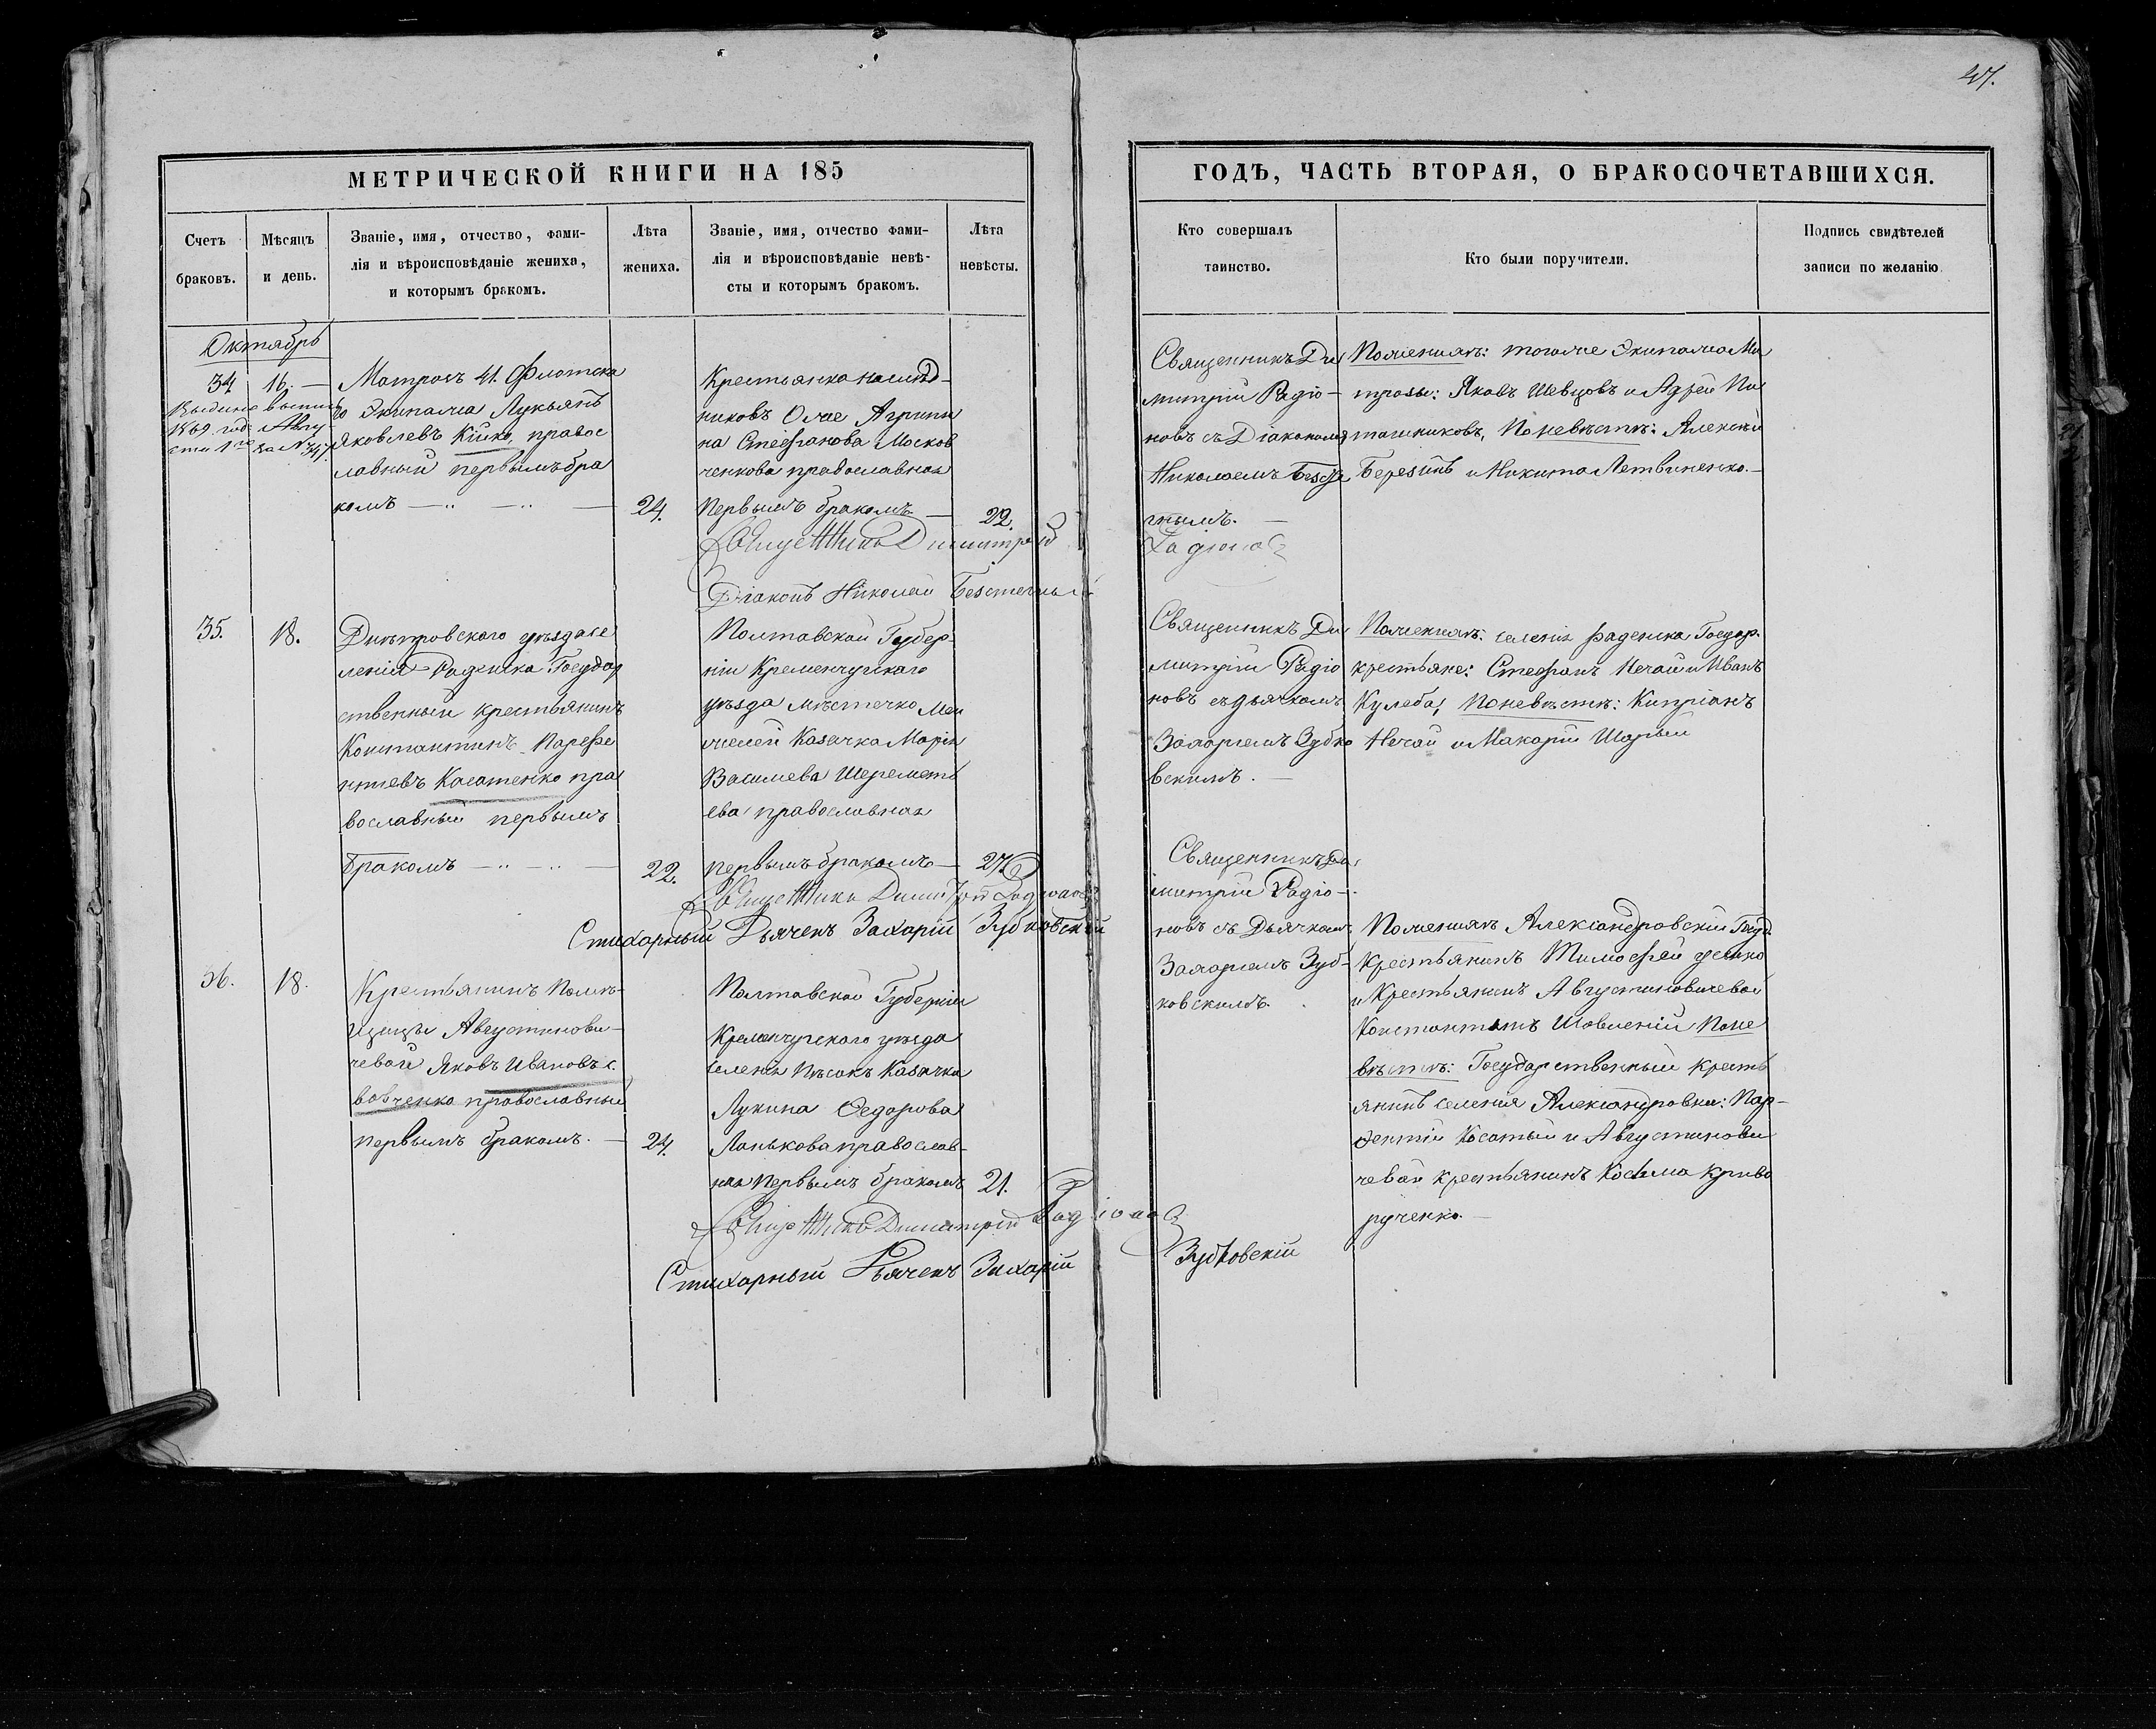 47.
МЕТРИЧЕСКОЙ КНИГИ НА 185
Счетъ браковъ.
Мѣсяцъ и день.
Званіе, имя, отчество, фами-
лія и вѣроисповѣданіе жениха,
и которымъ бракомъ.
Лѣта
жениха.
Званіе, имя, отчество фами-
лія и вѣроисповѣданіе невѣ-
сты и которымъ бракомъ.
Лѣта
невѣсты.
ГОДЪ, ЧАСТЬ ВТОРАЯ, О БРАКОСОЧЕТАВШИХСЯ.
Кто совершалъ
таинство.
Кто были поручители.
Подпись свидѣтелей
записи по желанію
Октябрь
34
16.
1869 год. Авгу
ста 1го за №
Матрозъ 41. Флотска
го Экипажа Лукьянъ
Яковлевъ Кійко, правос
лавный первымъ бра
комъ
24.
Крестьянка наслѣд-
никовъ Оже Агрипи
на Стефанова Москов
ченкова православная
первымъ бракомъ
22.
Священникъ Ди
митрій Радіо-
новъ съ Діакономъ
Николаемъ Безсче
тнымъ.
Поженихѣ: тогоже Экипажа Ма
трозы: Яковъ Шевцовъ и Адрей По
сташниковъ, Поневѣстѣ: Алексѣй
Березинъ и Никита Летвиненко.
Священникъ Димитрій Радіоновъ
Діаконъ Николай Безсчетный
35.
18.
Днѣпровскаго уѣзда се
ленія Раденска Государ
ственный крестьянинъ
Константинъ Парфе
нтіевъ Касатенко пра
вославный первымъ
бракомъ
22.
Полтавской Губер
ніи Кременчугскаго
уѣзда мѣстечко Ман
жалей Казачка Марія
Василиева Шереметь
ева православная
первымъ бракомъ
27
Священникъ Ди
митрій Радіо
новъ съ дьячкомъ
Захаріемъ Зубко
вскимъ.
Поженихѣ: селенія Раденска Госудор.
крестьяне: Стефанъ Нечай и Иванъ
Кулеба, Поневѣстѣ: Кипріанъ
Нечай и Макарій Шарый
Священникъ Димитрій Радіоновъ
Стихарный Дьячекъ Захарій Зубковскій
36.
18.
Крестьянинъ Помѣ-
щицы Августинови-
чевой Яковъ Ивановъ с.
вовченко православный
первымъ бракомъ.
24.
Полтавской Губерніи
Кременчугскаго уѣзда
селенія Пѣсокъ Казачка
Лукина Ѳедорова
Ланькова православ-
ная первымъ бракомъ
21.
Священникъ Ди
митрій Радіо-
новъ съ Дьячкомъ
Захаріемъ Зуб-
ковскимъ.
Поженихѣ Александровскій Госуд.
Крестьянинъ Тимофей
и Крестьянинъ Августиновичевой
Константинъ Шовленій Поне
вѣстѣ: Государственный кресть
янинъ селенія Александровки: Пар-
фентій Косатый и Августинови
чевой крестьянинъ Косьма Криво
рученко.
Священникъ Димитрій Радіоновъ
Стихарный Дьячекъ Захарій Зубковскій